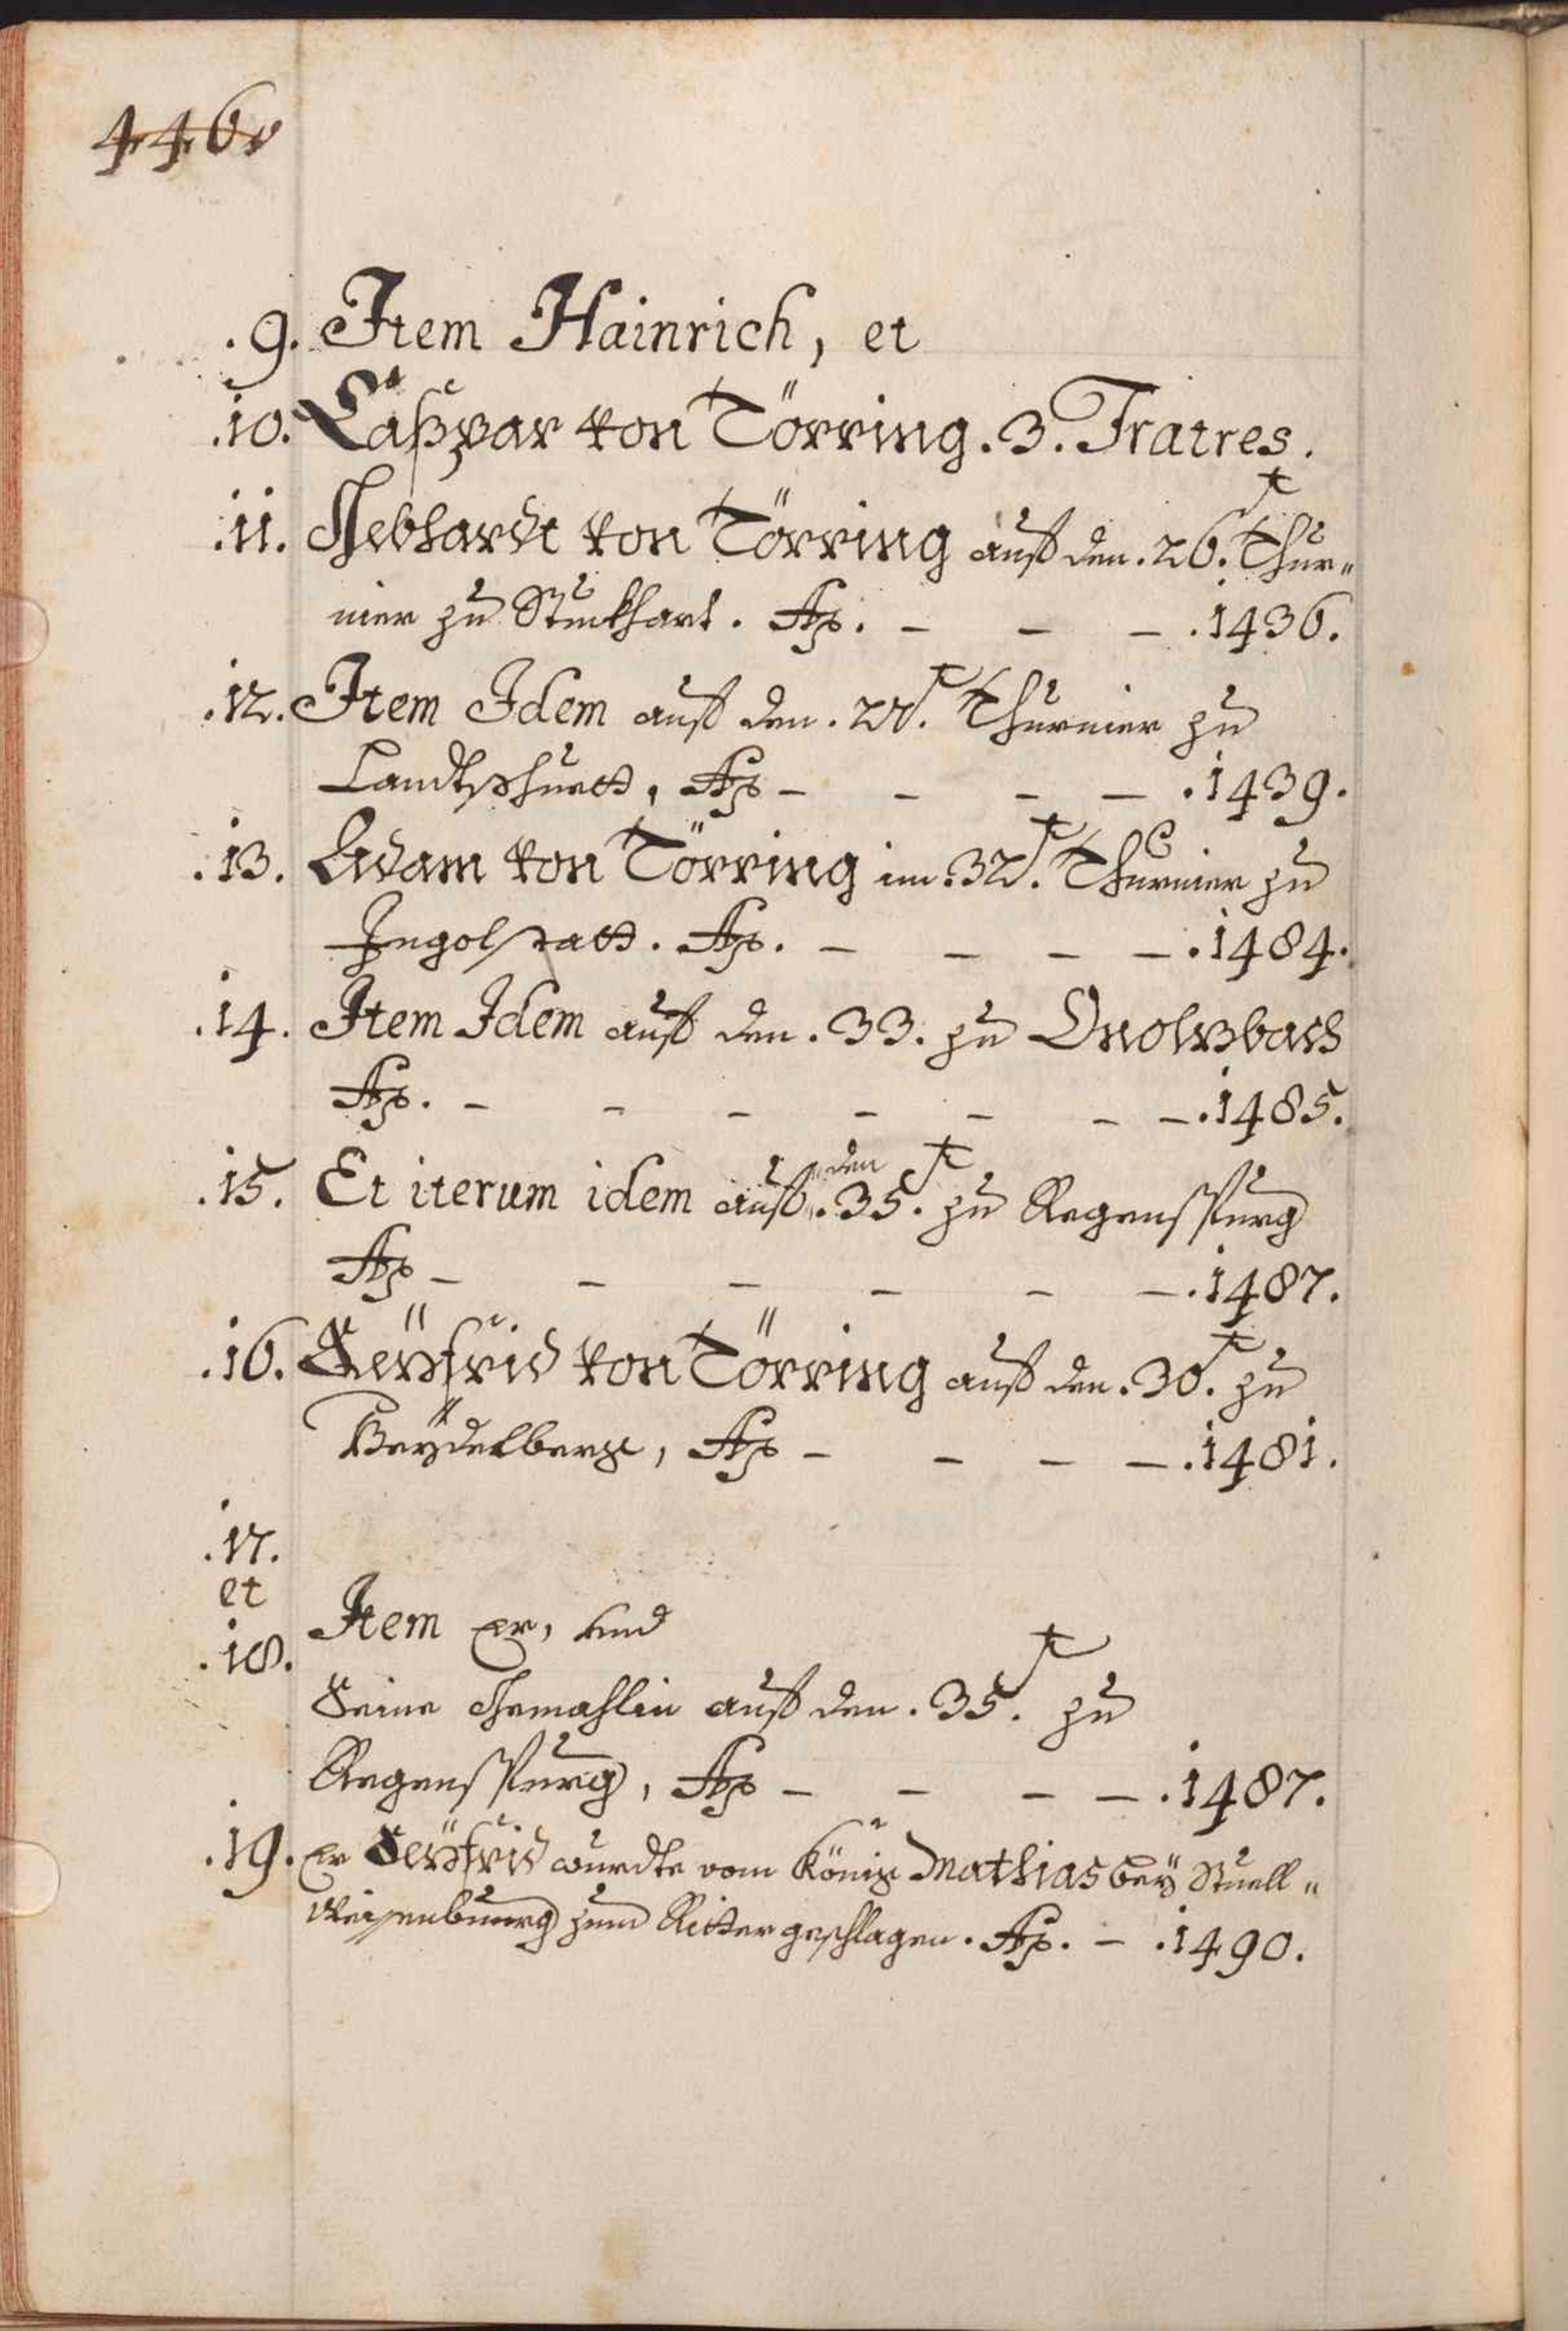 446v
.9. Item Hainrich, et
.10. Caßpar von Törring .3. Fratres.
.11. Gebhardt von Törring auf den .26.t Thur„
nier zu Stuckhart. Ao. – – – .1436.
.12. Item Idem auf den .27.t Thurnier zu
Landtshuett, Ao – – – – .1439.
.13. Adam von Törring im .32.t Thurnier zu
Ingolstatt. Ao. – – – – .1484.
.14. Item Idem auf den .33. zu Onolzbach
Ao. – – – – – – – .1485.
.15. Et iterum idem auf den .35.t zu Regenspurg
Ao – – – – – – .1487.
.16. Seyfrid von Törring auf den .30.t zu
Heydelberg, Ao – – – – .1481.
.17.
et
.18.
Item er, und
Seine Gemahlin auf den .35.t zu
Regenspurg, Ao – – – – .1487.
.19. er Seyfrid wurdte vom König Mathias bey Stuell„
Weisenbuurg zum Ritter geschlagen. Ao. – .1490.